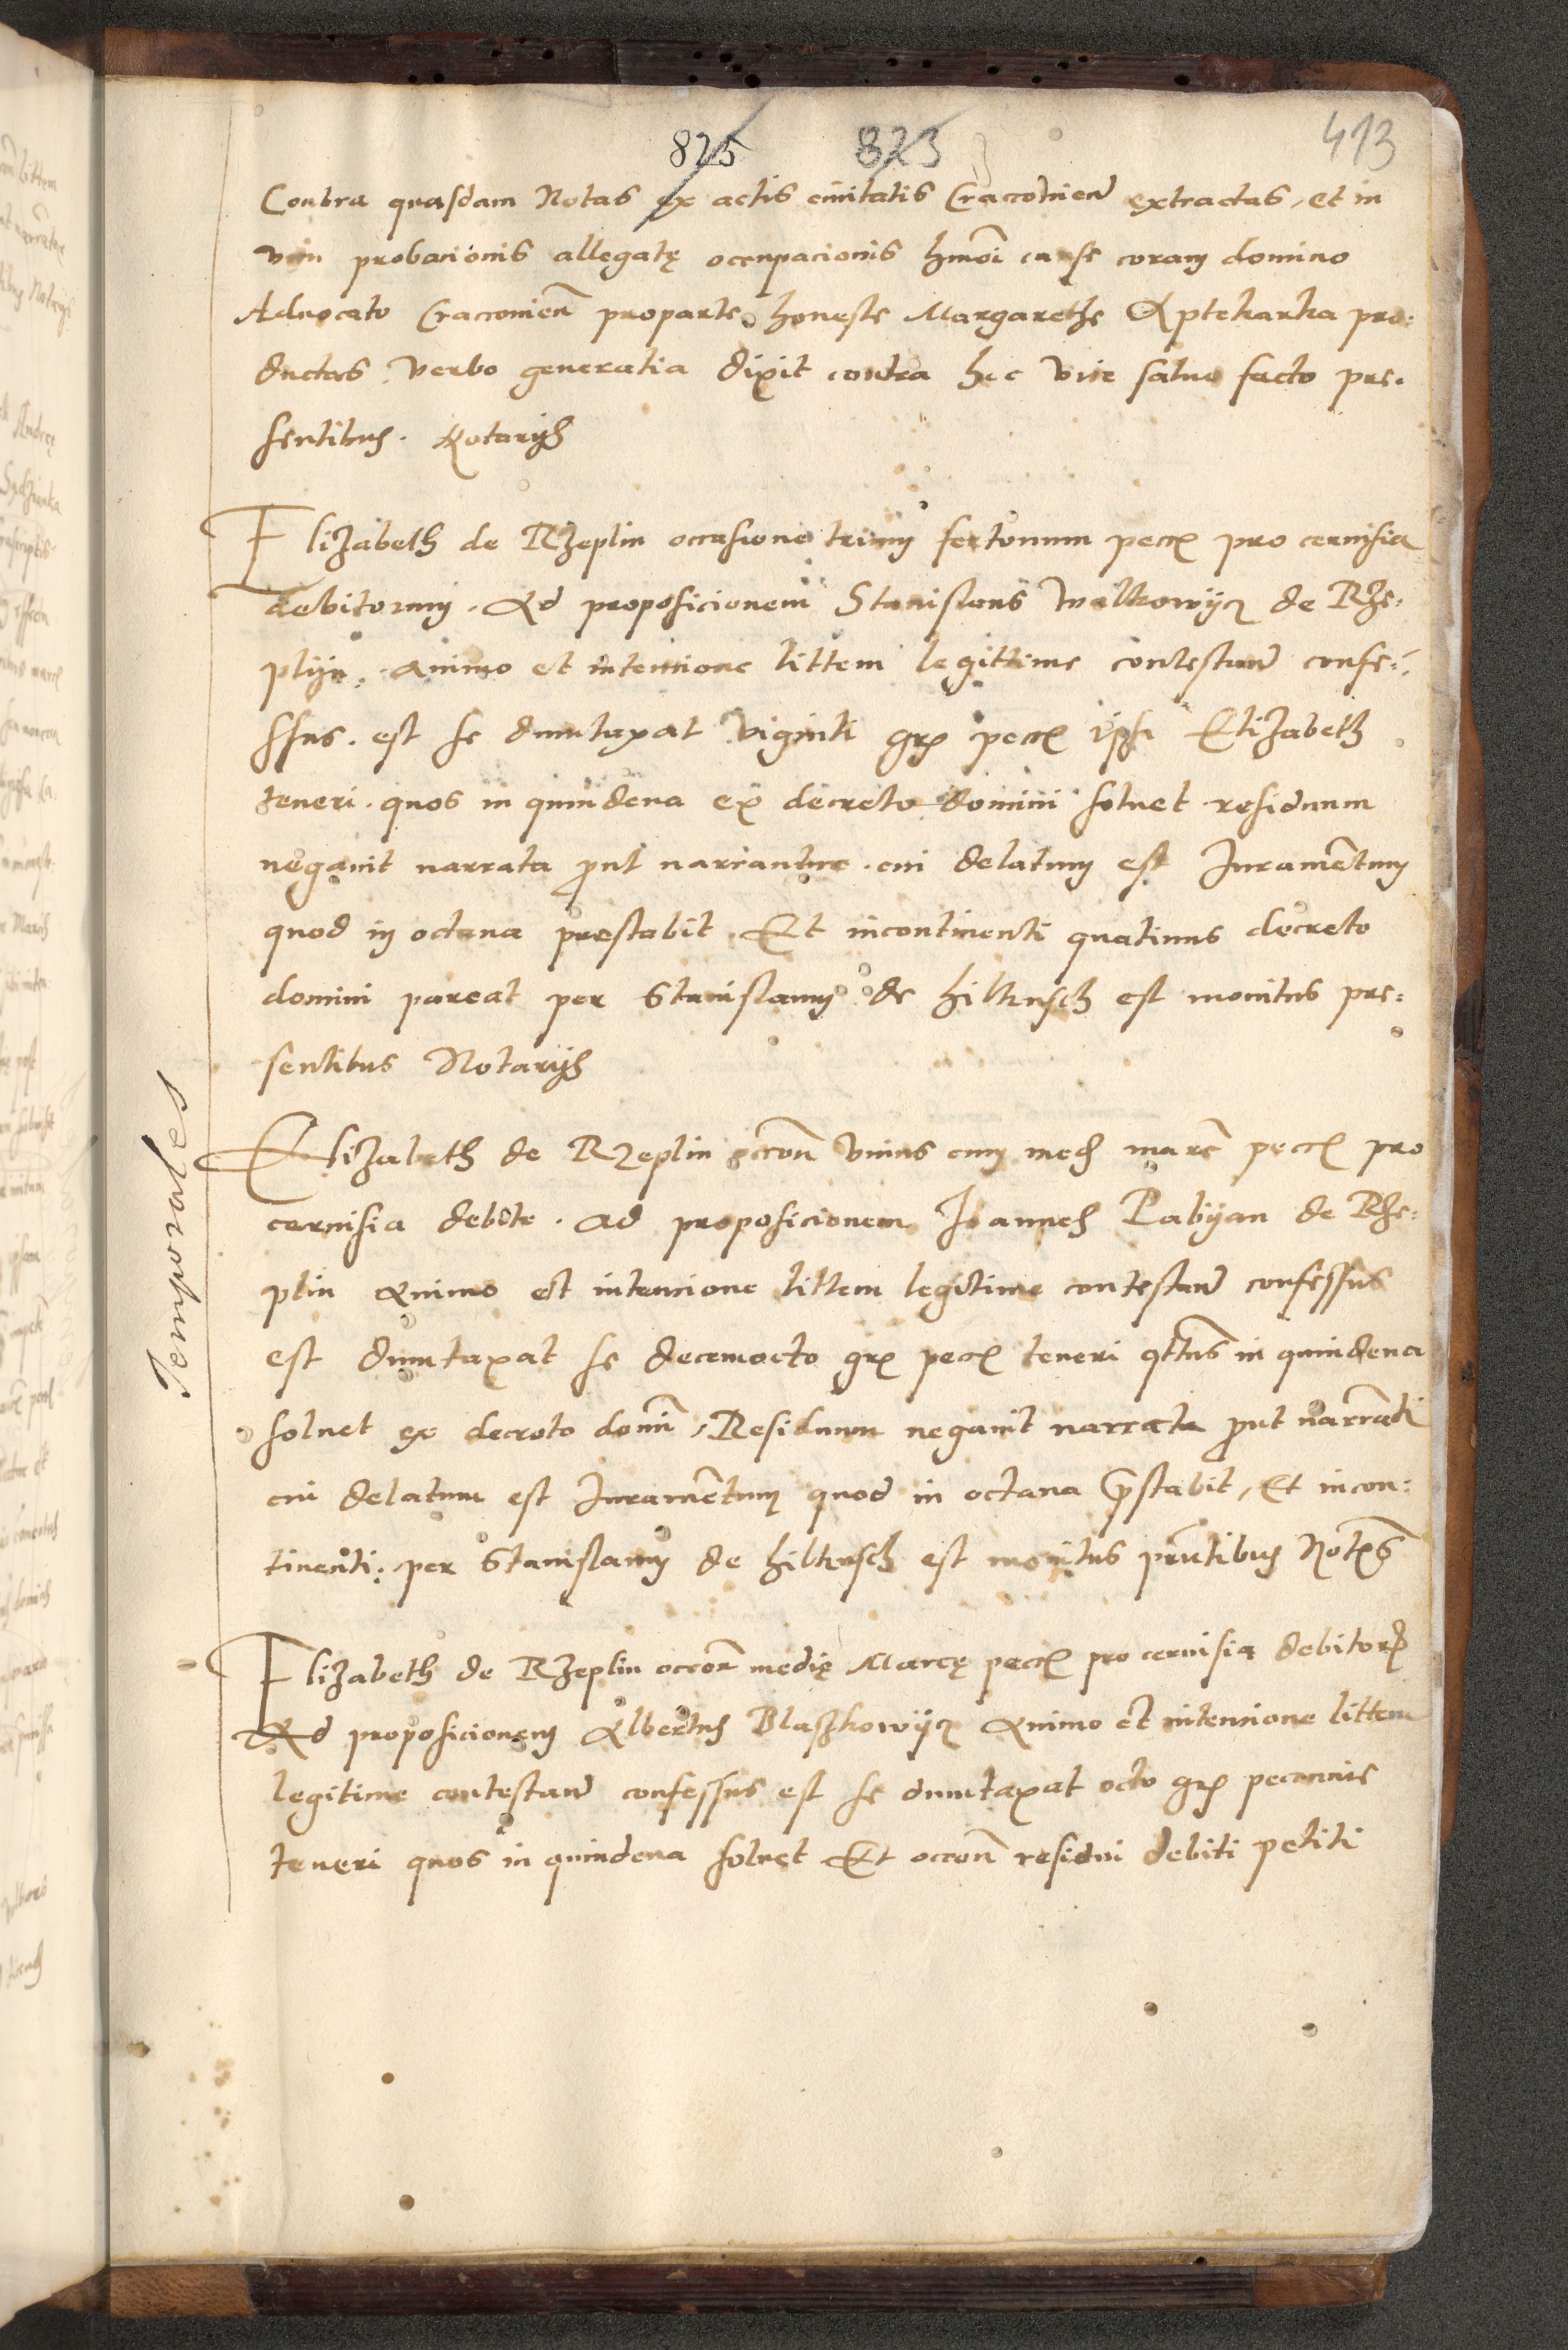 825 823 413
Contra quasdam Notas ex actis civitatis Cracovien extractas, et in
vim probacionis allegatę occupacionis hmoi cause coram domino
Advocato Cracovien proparte honeste Margarethe Aptekarka pro:
ductas verbo generalia dixit contra hec Vive salvo facto pre.
sentibus. Notarijs
Elizabeth de Rzeplin occasione trium fertonum pecc pro cervisia
debitorum. Ad proposicionem Stanislaus Walkowijcz de Rze:
plijn. animo et intencione littem legittime contestand confe:
ssus. est se dumtaxat Viginti grs pecc ipsi Elizabeth
teneri. quos in quindena ex decreto domini solvet residuum
negavit narrata put narrantur. cui delatum est Juramentum
quod in octava prestabit. Et incontinenti quatinus decreto
domini pareat per Stanislaum de hiltensch est monitus pre:
sentibus Notarijs
Temporales
Elizabeth de Rzeplin occon Vnius cum med marc pecc pro
cervisia debite. ad proposicionem Joannes Pabijan de Rze:
plin Animo et intencione littem legitime contestand confessus
est dumtaxat se decemocto grs pecc teneri qttus in quindena
solvet ex decreto domi, Residuum negavit narrata put narranti
cui delatum est Juramentum quod in octava pstabit, Et incon:
tinenti: per Stanislaum de hiltensch est monitus pntibus Notrs
Elizabeth de Rzeplin occon medię Marcę pecc pro cervisia debitor
Ad proposicionem Albertus Blaszkowijcz Animo et intencione littem
legitime contestand confessus est se dumtaxat octo grs peccunie
teneri quos in quindena solvet Et occon residui debiti petiti